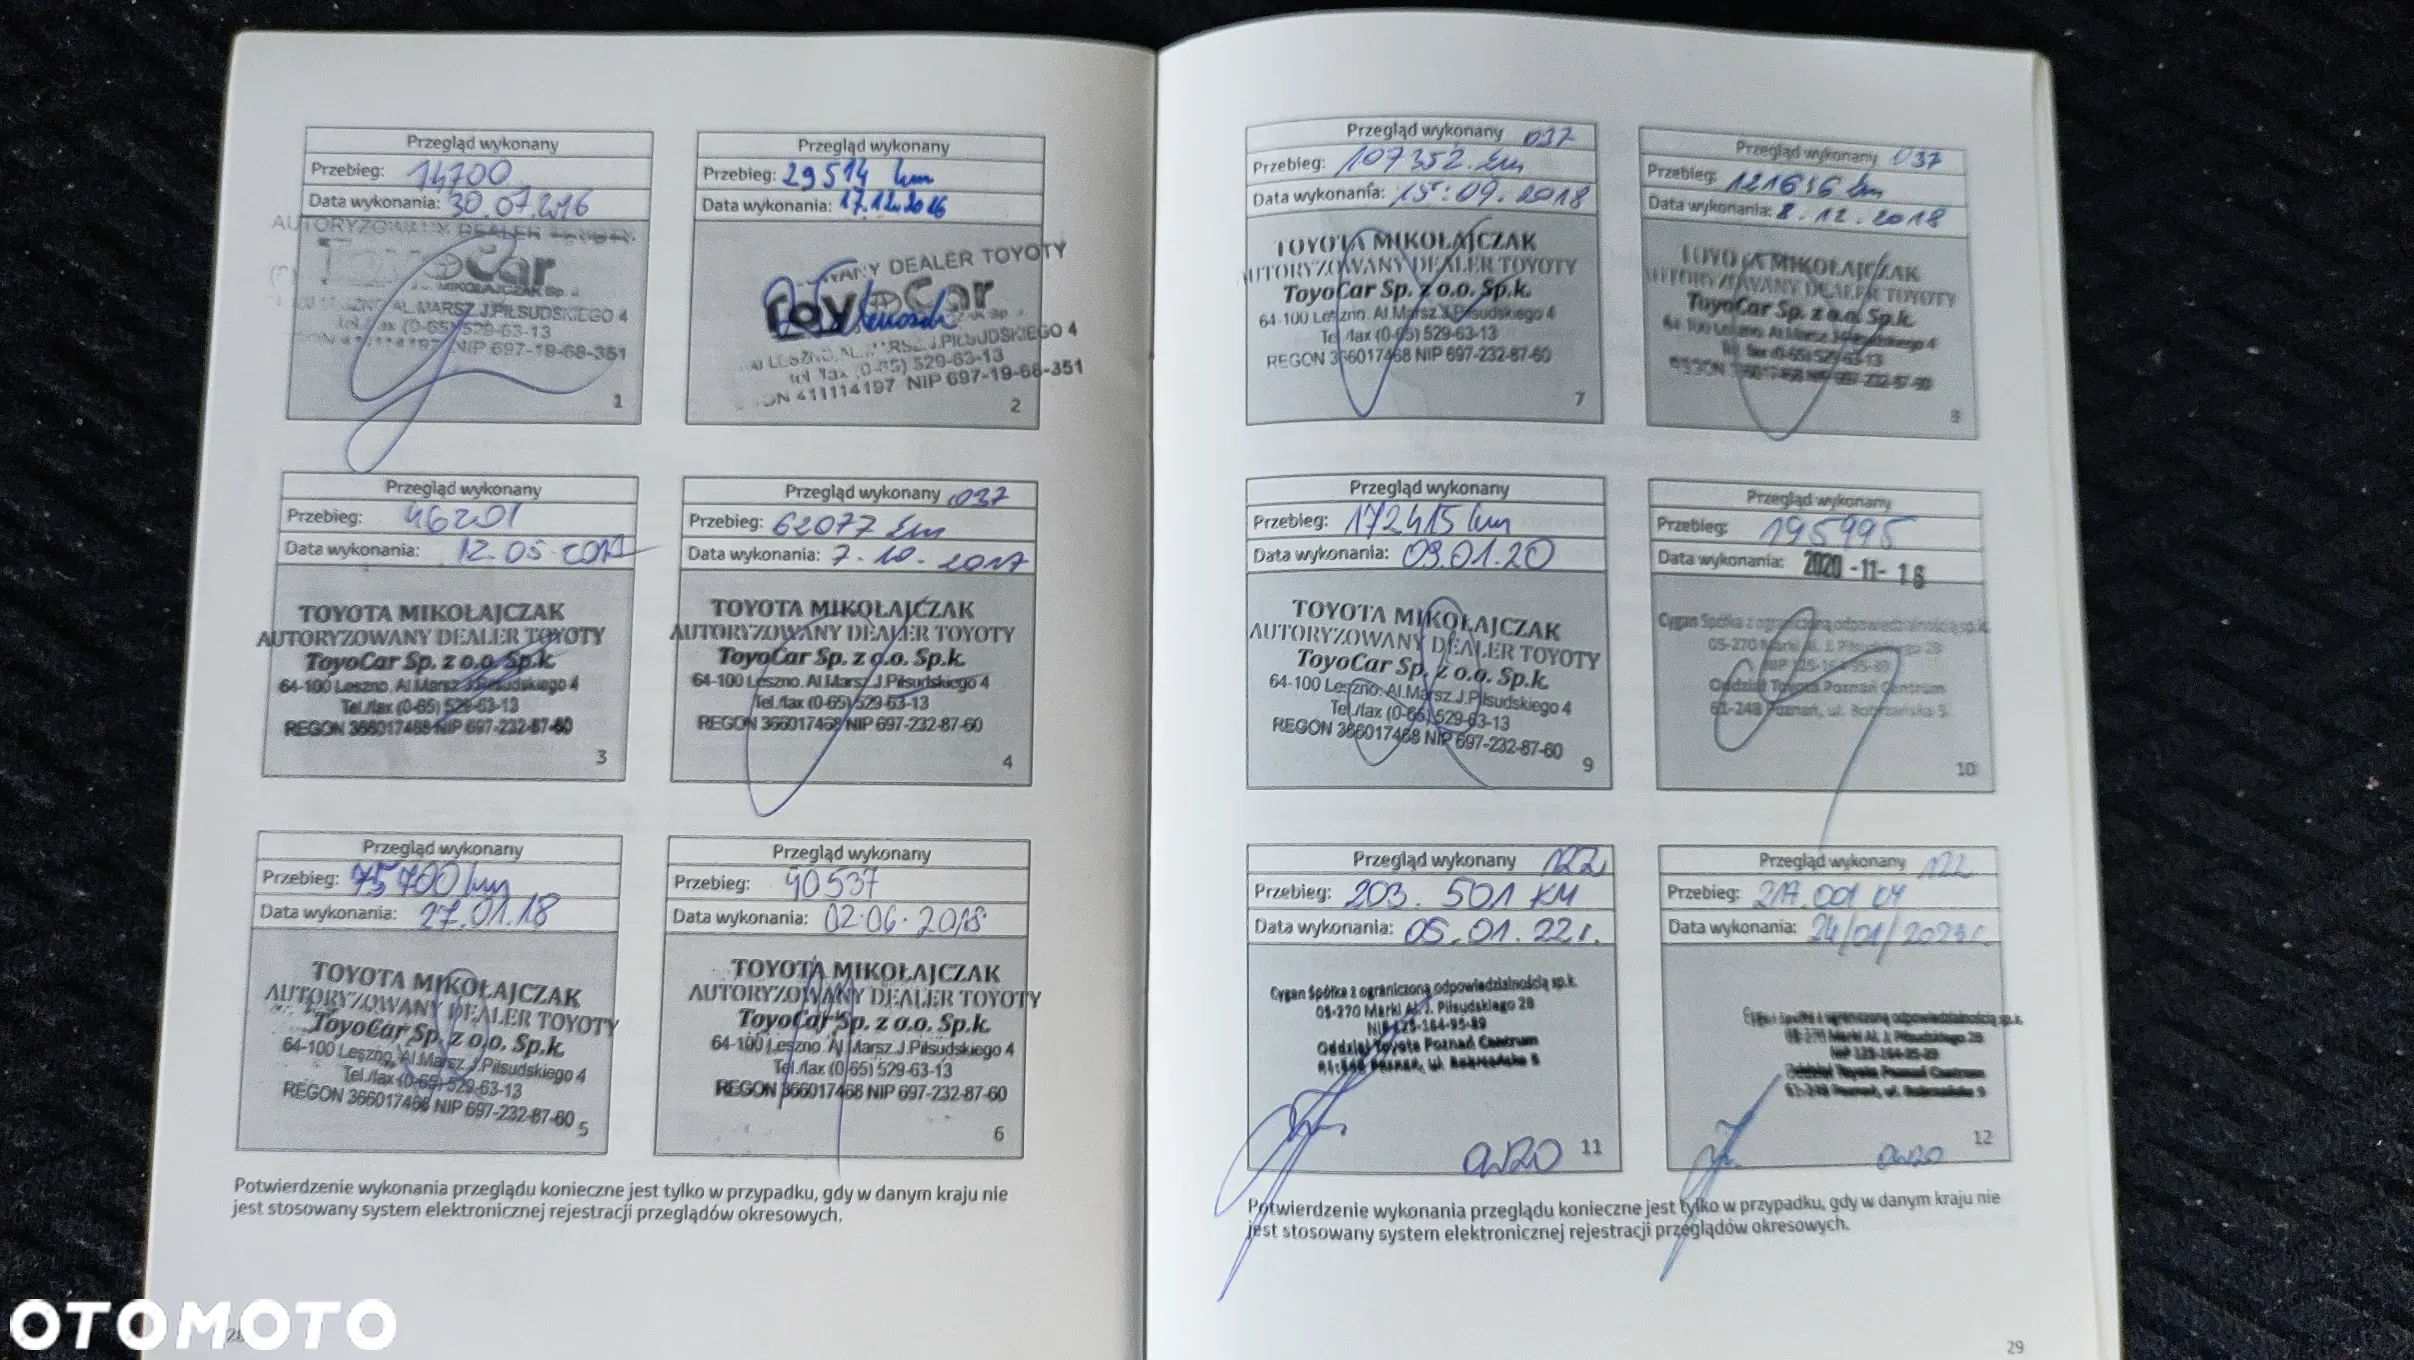 Przegląd wykonany
Przebieg: 14700
Data wykonania: 30.07.2016
AUTORYZOWANY DEALER TOYOTY
Car
MIKOŁAJCZAK Sp.
AL.MARSZ.J.PIŁSUDSKIEGO 4
(0-65) 529-63-13
NIP 697-19-68-351
1
Przegląd wykonany
Przebieg: 29514 km
Data wykonania: 17.12.2016
DEALER TOYOTY
Toyo Car
LESZNO, AL. MARSZ.J.PIŁSUDSKIEGO 4
tel. fax (0-65) 529-63-13
411114197 NIP 697-19-68-351
2
Przegląd wykonany
Przebieg: 46201
Data wykonania: 12.05.2017
TOYOTA MIKOŁAJCZAK
AUTORYZOWANY DEALER TOYOTY
ToyoCar Sp. z o.o. Sp.k.
64-100 Leszno. Al.Marsz.J.Piłsudskiego 4
Tel./fax (0-65) 529-63-13
REGON 366017468 NIP 697-232-87-60
3
Przegląd wykonany 037
Przebieg: 62077 km
Data wykonania: 7.10.2017
TOYOTA MIKOŁAJCZAK
AUTORYZOWANY DEALER TOYOTY
ToyoCar Sp. z o.o. Sp.k.
64-100 Leszno. Al.Marsz.J.Piłsudskiego 4
Tel./fax (0-65) 529-63-13
REGON 366017468 NIP 697-232-87-60
4
Przegląd wykonany
Przebieg: 75700 km
Data wykonania: 27.01.18
TOYOTA MIKOŁAJCZAK
AUTORYZOWANY DEALER TOYOTY
ToyoCar Sp. z o.o. Sp.k.
64-100 Leszno. Al.Marsz.J.Piłsudskiego 4
Tel./fax (0-65) 529-63-13
REGON 366017468 NIP 697-232-87-60
5
Przegląd wykonany
Przebieg: 90537
Data wykonania: 02.06.2018
TOYOTA MIKOŁAJCZAK
AUTORYZOWANY DEALER TOYOTY
ToyoCar Sp. z o.o. Sp.k.
64-100 Leszno. Al.Marsz.J.Piłsudskiego 4
Tel./fax (0-65) 529-63-13
REGON 366017468 NIP 697-232-87-60
6
Potwierdzenie wykonania przeglądu konieczne jest tylko w przypadku, gdy w danym kraju nie
jest stosowany system elektronicznej rejestracji przeglądów okresowych.
Przegląd wykonany 037
Przebieg: 107352 km
Data wykonania: 15.09.2018
TOYOTA MIKOŁAJCZAK
AUTORYZOWANY DEALER TOYOTY
ToyoCar Sp. z o.o. Sp.k.
64-100 Leszno. Al.Marsz.J.Piłsudskiego 4
Tel./fax (0-65) 529-63-13
REGON 366017468 NIP 697-232-87-60
7
Przegląd wykonany 037
Przebieg: 121616 km
Data wykonania: 8.12.2018
TOYOTA MIKOŁAJCZAK
AUTORYZOWANY DEALER TOYOTY
ToyoCar Sp. z o.o. Sp.k.
64-100 Leszno. Al.Marsz.J.Piłsudskiego 4
Tel./fax (0-65) 529-63-13
REGON 366017468 NIP 697-232-87-60
8
Przegląd wykonany
Przebieg: 172415 km
Data wykonania: 09.01.20
TOYOTA MIKOŁAJCZAK
AUTORYZOWANY DEALER TOYOTY
ToyoCar Sp. z o.o. Sp.k.
64-100 Leszno. Al.Marsz.J.Piłsudskiego 4
Tel./fax (0-65) 529-63-13
REGON 366017468 NIP 697-232-87-60
9
Przegląd wykonany
Przebieg: 195995
Data wykonania: 2020-11-16
Cygan Spółka z ograniczoną odpowiedzialnością sp.k.
05-270 Marki Al. J. Piłsudskiego 28
NIP 125-164-95-89
Oddział Toyota Poznań Centrum
61-248 Poznań, ul. Bobrzańska 5
10
Przegląd wykonany 122
Przebieg: 203.501 KM
Data wykonania: 05.01.22r.
Cygan Spółka z ograniczoną odpowiedzialnością sp.k.
05-270 Marki Al. J. Piłsudskiego 28
NIP 125-164-95-89
Oddział Toyota Poznań Centrum
61-248 Poznań, ul. Bobrzańska 5
0W20 11
Przegląd wykonany 122
Przebieg: 217.001 KM
Data wykonania: 24/01/2023r.
Cygan Spółka z ograniczoną odpowiedzialnością sp.k.
05-270 Marki Al. J. Piłsudskiego 28
NIP 125-164-95-89
Oddział Toyota Poznań Centrum
61-248 Poznań, ul. Bobrzańska 5
0W20 12
Potwierdzenie wykonania przeglądu konieczne jest tylko w przypadku, gdy w danym kraju nie
jest stosowany system elektronicznej rejestracji przeglądów okresowych.
29
OTOMOTO